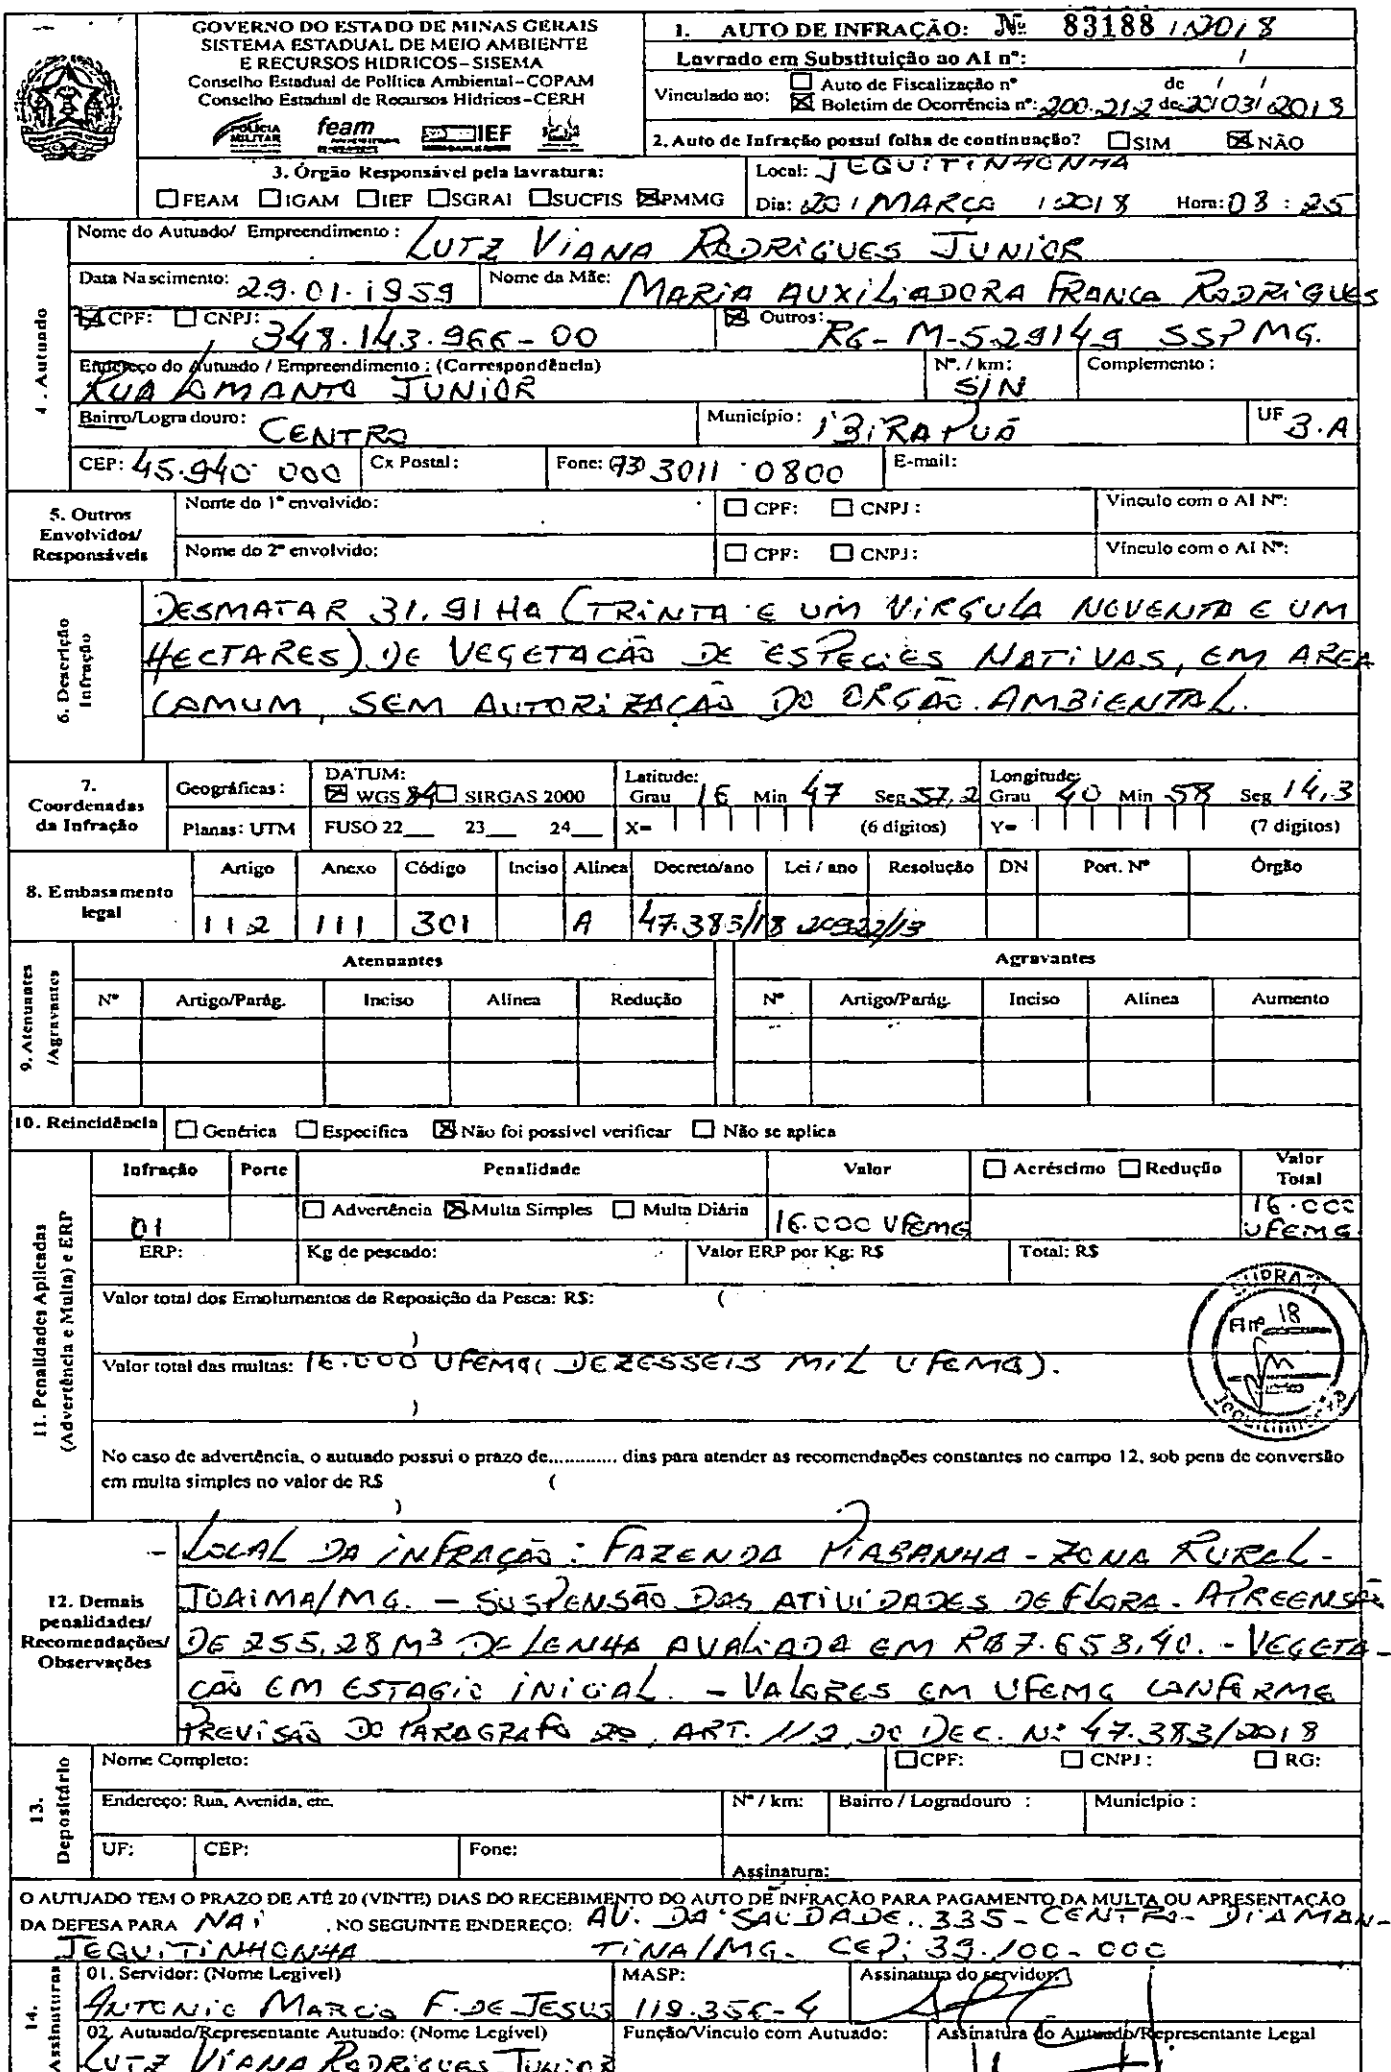 GOVERNO DO ESTADO DE MINAS GERAIS
SISTEMA ESTADUAL DE MEIO AMBIENTE
E RECURSOS HIDRICOS-SISEMA
Conselho Estadual de Política Ambiental-COPAM
Conselho Estadual de Recursos Hídricos-CERH
POLÍCIA MILITAR feam IEF
1. AUTO DE INFRAÇÃO: Nº 83188 / 2018
Lavrado em Substituição ao AI nº: /
Vinculado ao: ☐ Auto de Fiscalização nº de / /
☒ Boletim de Ocorrência nº: 200.212 de 20/03/2018
2. Auto de Infração possui folha de continuação? ☐ SIM ☒ NÃO
3. Órgão Responsável pela lavratura:
☐ FEAM ☐ IGAM ☐ IEF ☐ SGRAI ☐ SUCFIS ☒ PMMG
Local: JEQUITINHONHA
Dia: 20 / MARÇO / 2018 Hora: 08 : 25
4. Autuado
Nome do Autuado/ Empreendimento: LUTZ VIANA RODRIGUES JUNIOR
Data Nascimento: 29.01.1959 Nome da Mãe: MARIA AUXILIADORA FRANCA RODRIGUES
☒ CPF: ☐ CNPJ: 348.143.966-00 ☒ Outros: RG- M-529149 SSPMG.
Endereço do Autuado / Empreendimento: (Correspondência) Nº. / km: Complemento:
RUA LOMANTO JUNIOR S/N
Bairro/Logradouro: CENTRO Município: IBIRAPUÃ UF B.A
CEP: 45.940-000 Cx Postal: Fone: (73) 3011-0800 E-mail:
5. Outros Envolvidos/ Responsáveis
Nome do 1º envolvido: ☐ CPF: ☐ CNPJ: Vinculo com o AI Nº:
Nome do 2º envolvido: ☐ CPF: ☐ CNPJ: Vínculo com o AI Nº:
6. Descrição Infração
DESMATAR 31,91 HA (TRINTA E UM VIRGULA NOVENTA E UM
HECTARES) DE VEGETAÇÃO DE ESPECIES NATIVAS, EM AREA
COMUM, SEM AUTORIZAÇÃO DO ORGÃO AMBIENTAL.
7. Coordenadas da Infração
Geográficas: DATUM: ☒ WGS 84 ☐ SIRGAS 2000 Latitude: Grau 16 Min 47 Seg 57,2 Longitude: Grau 40 Min 58 Seg 14,3
Planas: UTM FUSO 22 23 24 X= (6 dígitos) Y= (7 dígitos)
8. Embasamento legal
Artigo Anexo Código Inciso Alínea Decreto/ano Lei / ano Resolução DN Port. Nº Órgão
112 111 301 A 47.383/18 20922/13
9. Atenuantes /Agravantes
Atenuantes Agravantes
Nº Artigo/Parág. Inciso Alínea Redução Nº Artigo/Parág. Inciso Alínea Aumento
10. Reincidência ☐ Genérica ☐ Específica ☒ Não foi possível verificar ☐ Não se aplica
11. Penalidades Aplicadas (Advertência e Multa) e ERP
Infração Porte Penalidade Valor ☐ Acréscimo ☐ Redução Valor Total
01 ☐ Advertência ☒ Multa Simples ☐ Multa Diária 16.000 UFEMG 16.000 UFEMG
ERP: Kg de pescado: Valor ERP por Kg: R$ Total: R$
Valor total dos Emolumentos de Reposição da Pesca: R$: (
)
Valor total das multas: 16.000 UFEMG( DEZESSEIS MIL UFEMG).
)
SUPRAM
Fl nº 18
Jequitinhonha
No caso de advertência, o autuado possui o prazo de............. dias para atender as recomendações constantes no campo 12, sob pena de conversão
em multa simples no valor de R$ (
)
12. Demais penalidades/ Recomendações/ Observações
- LOCAL DA INFRAÇÃO: FAZENDA PIABANHA - ZONA RURAL -
JOAIMA/MG. - SUSPENSÃO DAS ATIVIDADES DE FLORA. APREENSÃO
DE 255,28 M³ DE LENHA AVALIADA EM R$7.658,40. - VEGETA-
ÇÃO EM ESTAGIO INICIAL. - VALORES EM UFEMG CONFORME
PREVISÃO DO PARAGRAFO 2º, ART. 112, DO DEC. Nº 47.383/2018
13. Depositário
Nome Completo: ☐ CPF: ☐ CNPJ: ☐ RG:
Endereço: Rua, Avenida, etc. Nº / km: Bairro / Logradouro : Município :
UF: CEP: Fone: Assinatura:
O AUTUADO TEM O PRAZO DE ATÉ 20 (VINTE) DIAS DO RECEBIMENTO DO AUTO DE INFRAÇÃO PARA PAGAMENTO DA MULTA OU APRESENTAÇÃO
DA DEFESA PARA NAI , NO SEGUINTE ENDEREÇO: AV. DA SAUDADE, 335 - CENTRO - DIAMAN-
JEQUITINHONHA TINA/MG. CEP: 39.100-000
14. Assinaturas
01. Servidor: (Nome Legível) MASP: Assinatura do servidor:
ANTONIO MARCIO F. DE JESUS 119.356-4
02. Autuado/Representante Autuado: (Nome Legível) Função/Vinculo com Autuado: Assinatura do Autuado/Representante Legal
LUTZ VIANA RODRIGUES JUNIOR